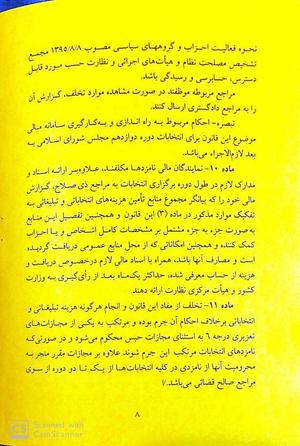 نحوه فعالیت احزاب و گروههای سیاسی مصوب ۱۳۹۵/۸/۸ مجمع
تشخیص مصلحت نظام و هیأت‌های اجرائی و نظارت حسب مورد قابل
دسترس، حسابرسی و رسیدگی باشد.
مراجع مربوطه موظفند در صورت مشاهده موارد تخلف، گزارش آن
را به مراجع دادگستری ارسال کنند.
تبصره- احکام مربوط به راه اندازی و به‌کارگیری سامانه مالی
موضوع این قانون برای انتخابات دوره دوازدهم مجلس شورای اسلامی به
بعد لازم‌الاجراء می‌باشد.
ماده ۱۰- نمایندگان مالی نامزدها مکلفند، علاوه‌بر ارائه اسناد و
مدارک لازم در طول دوره برگزاری انتخابات به مراجع ذی صلاح، گزارش
مالی خود را که بیانگر مجموع منابع تأمین هزینه‌های انتخاباتی و تبلیغاتی به
تفکیک موارد مذکور در ماده (۳) این قانون و همچنین تفصیل این منابع
به صورت جزء به جزء مشتمل بر مشخصات کامل اشخاص و یا احزاب
کمک کننده و همچنین امکاناتی که از محل منابع عمومی دریافت گردیده
است و مصارف آنها باشد، همراه با اسناد مالی لازم درخصوص دریافت و
هزینه از حساب معرفی شده، حداکثر یک‌ماه بعد از رأی‌گیری به وزارت
کشور و هیأت مرکزی نظارت ارائه دهند.
ماده ۱۱- تخلف از مفاد این قانون و انجام هرگونه هزینه تبلیغاتی و
انتخاباتی برخلاف احکام آن جرم بوده و مرتکب به یکی از مجازات‌های
تعزیری درجه ۶ به استثنای مجازات حبس محکوم می‌شود و در صورتی‌که
نامزدهای انتخابات مرتکب این جرم شوند علاوه بر مجازات مقرر منجر به
محرومیت آنها از نامزدی در کلیه انتخابات‌ها از یک تا دو دوره از سوی
مراجع صالح قضائی می‌باشد./
۸
CS Scanned with
CamScanner